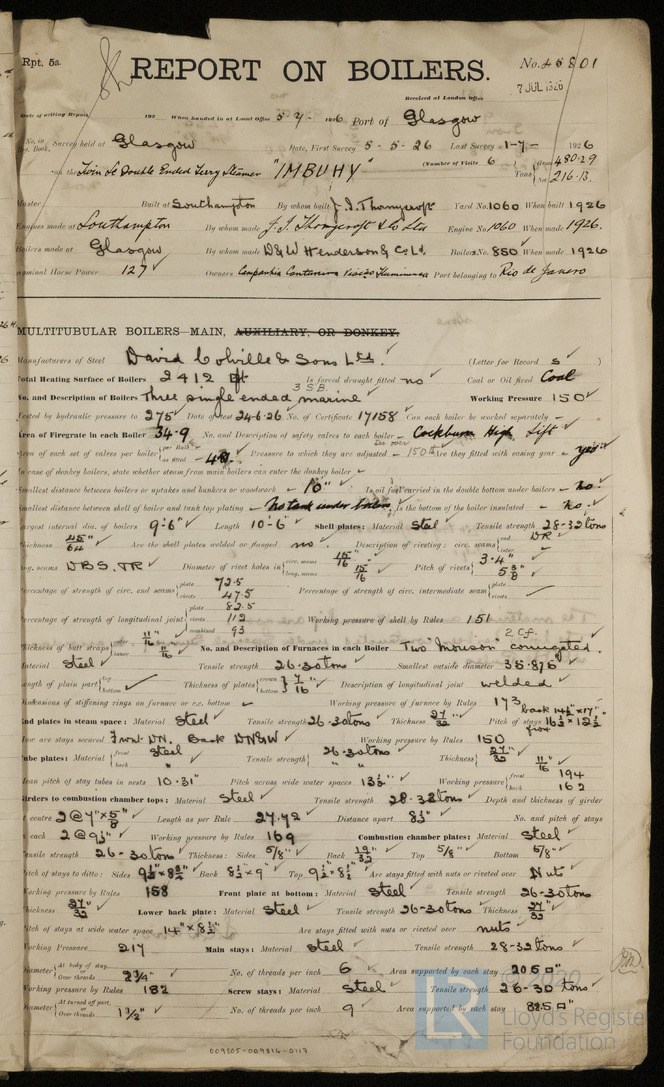 Rpt. 5a.
REPORT ON BOILERS.
No. 45801
Received at London Office
7 JUL 1926
Date of writing Report 192 When handed in at Local Office 5-7-1926 Port of Glasgow
No. in Reg. Book. Survey held at Glasgow Date, First Survey 5-5-26 Last Survey 1-7- 1926
on the Twin Sc Double Ended Ferry Steamer "IMBUHY" (Number of Visits 6) Tons Gross 480.29
Net 216.13
Master Built at Southampton By whom built J. I. Thornycroft Yard No. 1060 When built 1926
Engines made at Southampton By whom made J. I. Thornycroft & Co Ltd Engine No. 1060 When made 1926.
Boilers made at Glasgow By whom made D & W Henderson & Co Ld. Boilers No. 850 When made 1926
Nominal Horse Power 127 Owners Companhia Cantareira Viacao Fluminense Port belonging to Rio de Janeiro
MULTITUBULAR BOILERS—MAIN, AUXILIARY, OR DONKEY.
Manufacturers of Steel David Colville & Sons Ltd (Letter for Record S)
Total Heating Surface of Boilers 2412 Is forced draught fitted no Coal or Oil fired Coal
3 S.B.
No. and Description of Boilers Three single ended marine Working Pressure 150
Tested by hydraulic pressure to 275 Date of test 24-6-26 No. of Certificate 17158 Can each boiler be worked separately -
Area of Firegrate in each Boiler 34.9 No. and Description of safety valves to each boiler Cockburn High Lift
Area of each set of valves per boiler per Rule as fitted Pressure to which they are adjusted 150 Are they fitted with easing gear yes
In case of donkey boilers, state whether steam from main boilers can enter the donkey boiler
Smallest distance between boilers or uptakes and bunkers or woodwork 10" Is oil fuel carried in the double bottom under boilers no
Smallest distance between shell of boiler and tank top plating No tank under boilers Is the bottom of the boiler insulated no.
Largest internal dia. of boilers 9'-6" Length 10'-6" Shell plates: Material Steel Tensile strength 28-32 tons
Thickness 45/64" Are the shell plates welded or flanged no. Description of riveting: circ. seams end DR
inter.
long. seams DBS. TR Diameter of rivet holes in circ. seams 15/16 long. seams 15/16 Pitch of rivets 3.4" 5 3/8
Percentage of strength of circ. end seams plate 72.5 rivets 47.5 Percentage of strength of circ. intermediate seam plate rivets
Percentage of strength of longitudinal joint plate 82.5 rivets 112 combined 93 Working pressure of shell by Rules 151
2 C.F.
Thickness of butt straps outer 11/16" inner 11/16 No. and Description of Furnaces in each Boiler Two "Morison" corrugated.
Material Steel Tensile strength 26-30 tons Smallest outside diameter 35.875
Length of plain part top bottom Thickness of plates crown bottom 7/16" Description of longitudinal joint welded
Dimensions of stiffening rings on furnace or c.c. bottom Working pressure of furnace by Rules 173
End plates in steam space: Material Steel Tensile strength 26-30 tons Thickness 27/32" Pitch of stays back 14 1/2" x 17" front 16 1/2 x 12 1/2
How are stays secured Front DN. Back DN&W Working pressure by Rules 150
Tube plates: Material front Steel back " Tensile strength 26-30 tons " " Thickness 27/32" 11/16"
Mean pitch of stay tubes in nests 10.31" Pitch across wide water spaces 13 1/2" Working pressure front 194 back 162
Girders to combustion chamber tops: Material Steel Tensile strength 28-32 tons Depth and thickness of girder
at centre 2 @ 7" x 5/8" Length as per Rule 27.72 Distance apart 8 1/2" No. and pitch of stays
in each 2 @ 9 1/2" Working pressure by Rules 169 Combustion chamber plates: Material Steel
Tensile strength 26-30 tons Thickness: Sides 5/8" Back 19/32" Top 5/8" Bottom 5/8"
Pitch of stays to ditto: Sides 9 1/2" x 8 3/4" Back 8 1/2" x 9" Top 9 1/2" x 8 1/2" Are stays fitted with nuts or riveted over Nuts
Working pressure by Rules 158 Front plate at bottom: Material Steel Tensile strength 26-30 tons
Thickness 27/32" Lower back plate: Material Steel Tensile strength 26-30 tons Thickness 27/32"
Pitch of stays at wide water space 14" x 8 1/2" Are stays fitted with nuts or riveted over nuts
Working Pressure 217 Main stays: Material Steel Tensile strength 28-32 tons
Diameter At body of stay, or Over threads 2 3/4" No. of threads per inch 6 Area supported by each stay 205 □"
Working pressure by Rules 182 Screw stays: Material Steel Tensile strength 26-30 tons
Diameter At turned off part, or Over threads 1 1/2" No. of threads per inch 9 Area supported by each stay 82.5 □"
009805-009816-0117
© 2020
LR
Lloyd's Register
Foundation